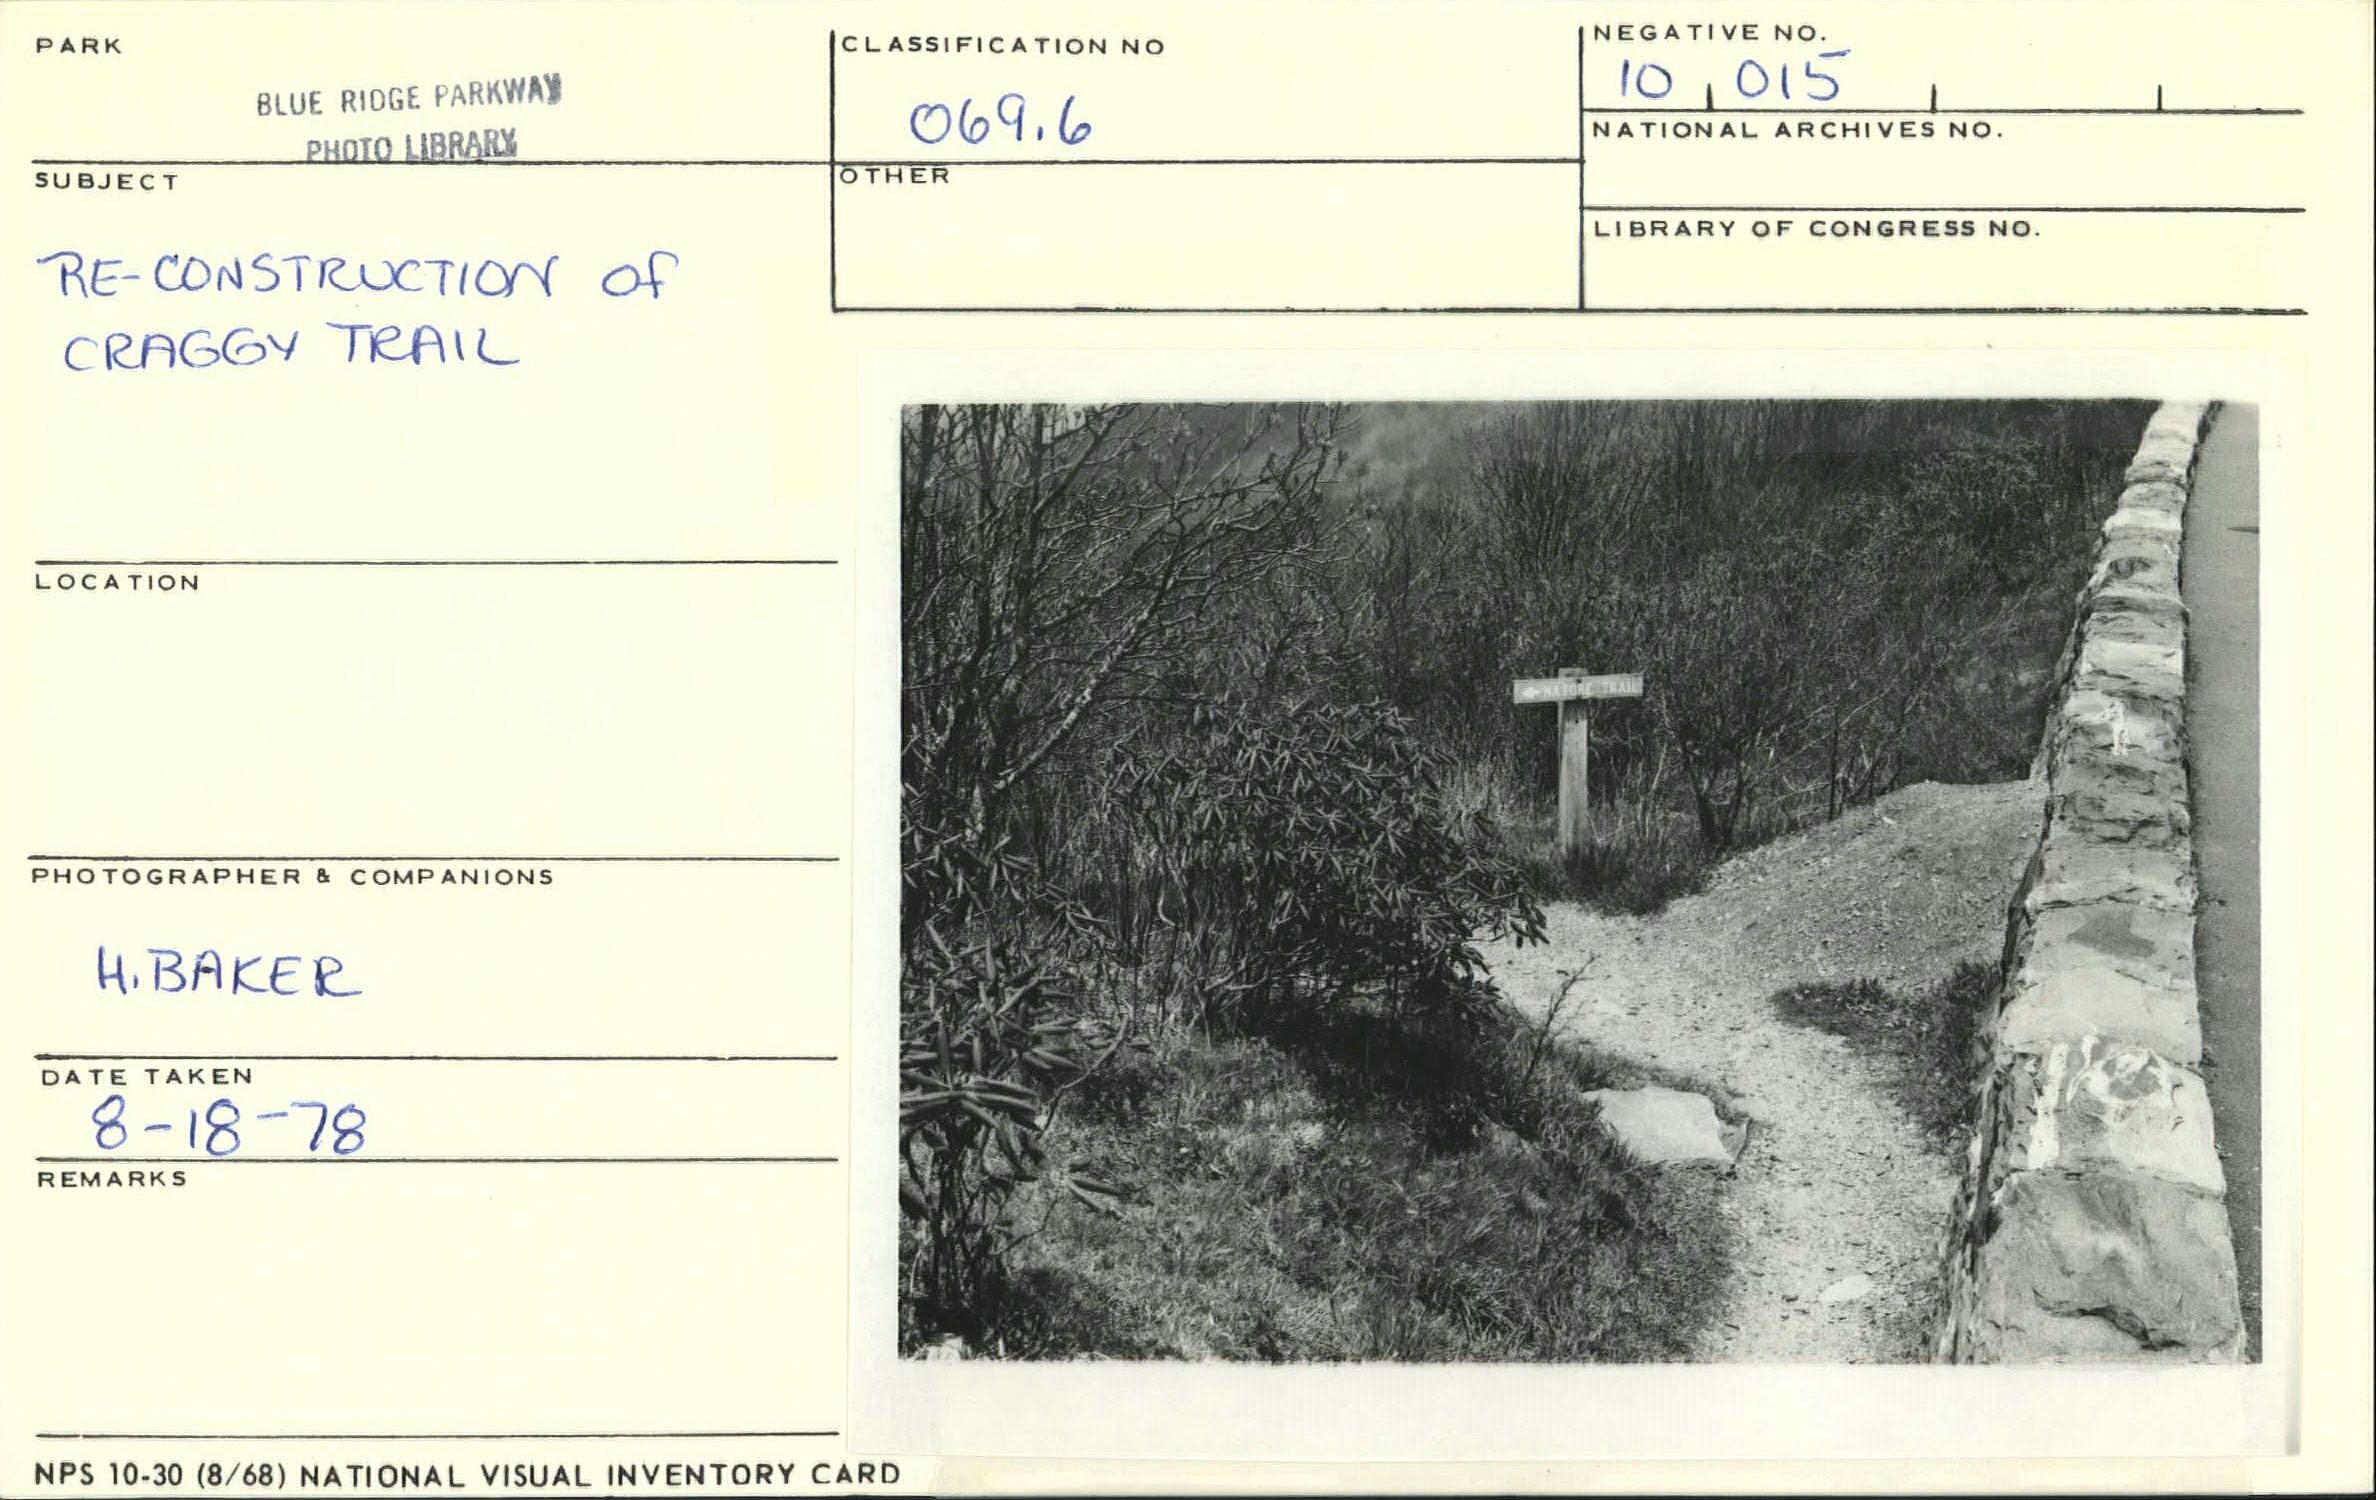 PARK
BLUE RIDGE PARKWAY
PHOTO LIBRARY
CLASSIFICATION NO
069.6
NEGATIVE NO.
10 015
NATIONAL ARCHIVES NO.
LIBRARY OF CONGRESS NO.
OTHER
SUBJECT
RE-CONSTRUCTION of
CRAGGY TRAIL
LOCATION
PHOTOGRAPHER & COMPANIONS
H. BAKER
DATE TAKEN
8-18-78
REMARKS
NATURE TRAIL
NPS 10-30 (8/68) NATIONAL VISUAL INVENTORY CARD